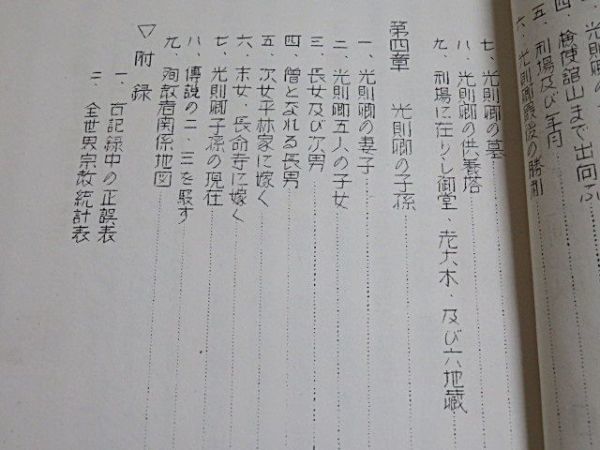 光則卿の
四、検使舘山まで出向ふ
五、刑場及び年月
六、光則卿最後の勝利
七、光則卿の墓
八、光則卿の供養塔
九、刑場に在りし御堂・老大木・及び六地蔵
第四章 光則卿の子孫
一、光則卿の妻子
二、光則卿五人の子女
三、長女及び次男
四、僧となれる長男
五、次女平林家に嫁く
六、末女、長命寺に嫁く
七、光則卿子孫の現在
八、傳説の二、三を駁す
九、殉教者関係地図
▽附録
一、古記録中の正誤表
二、全世界宗教統計表